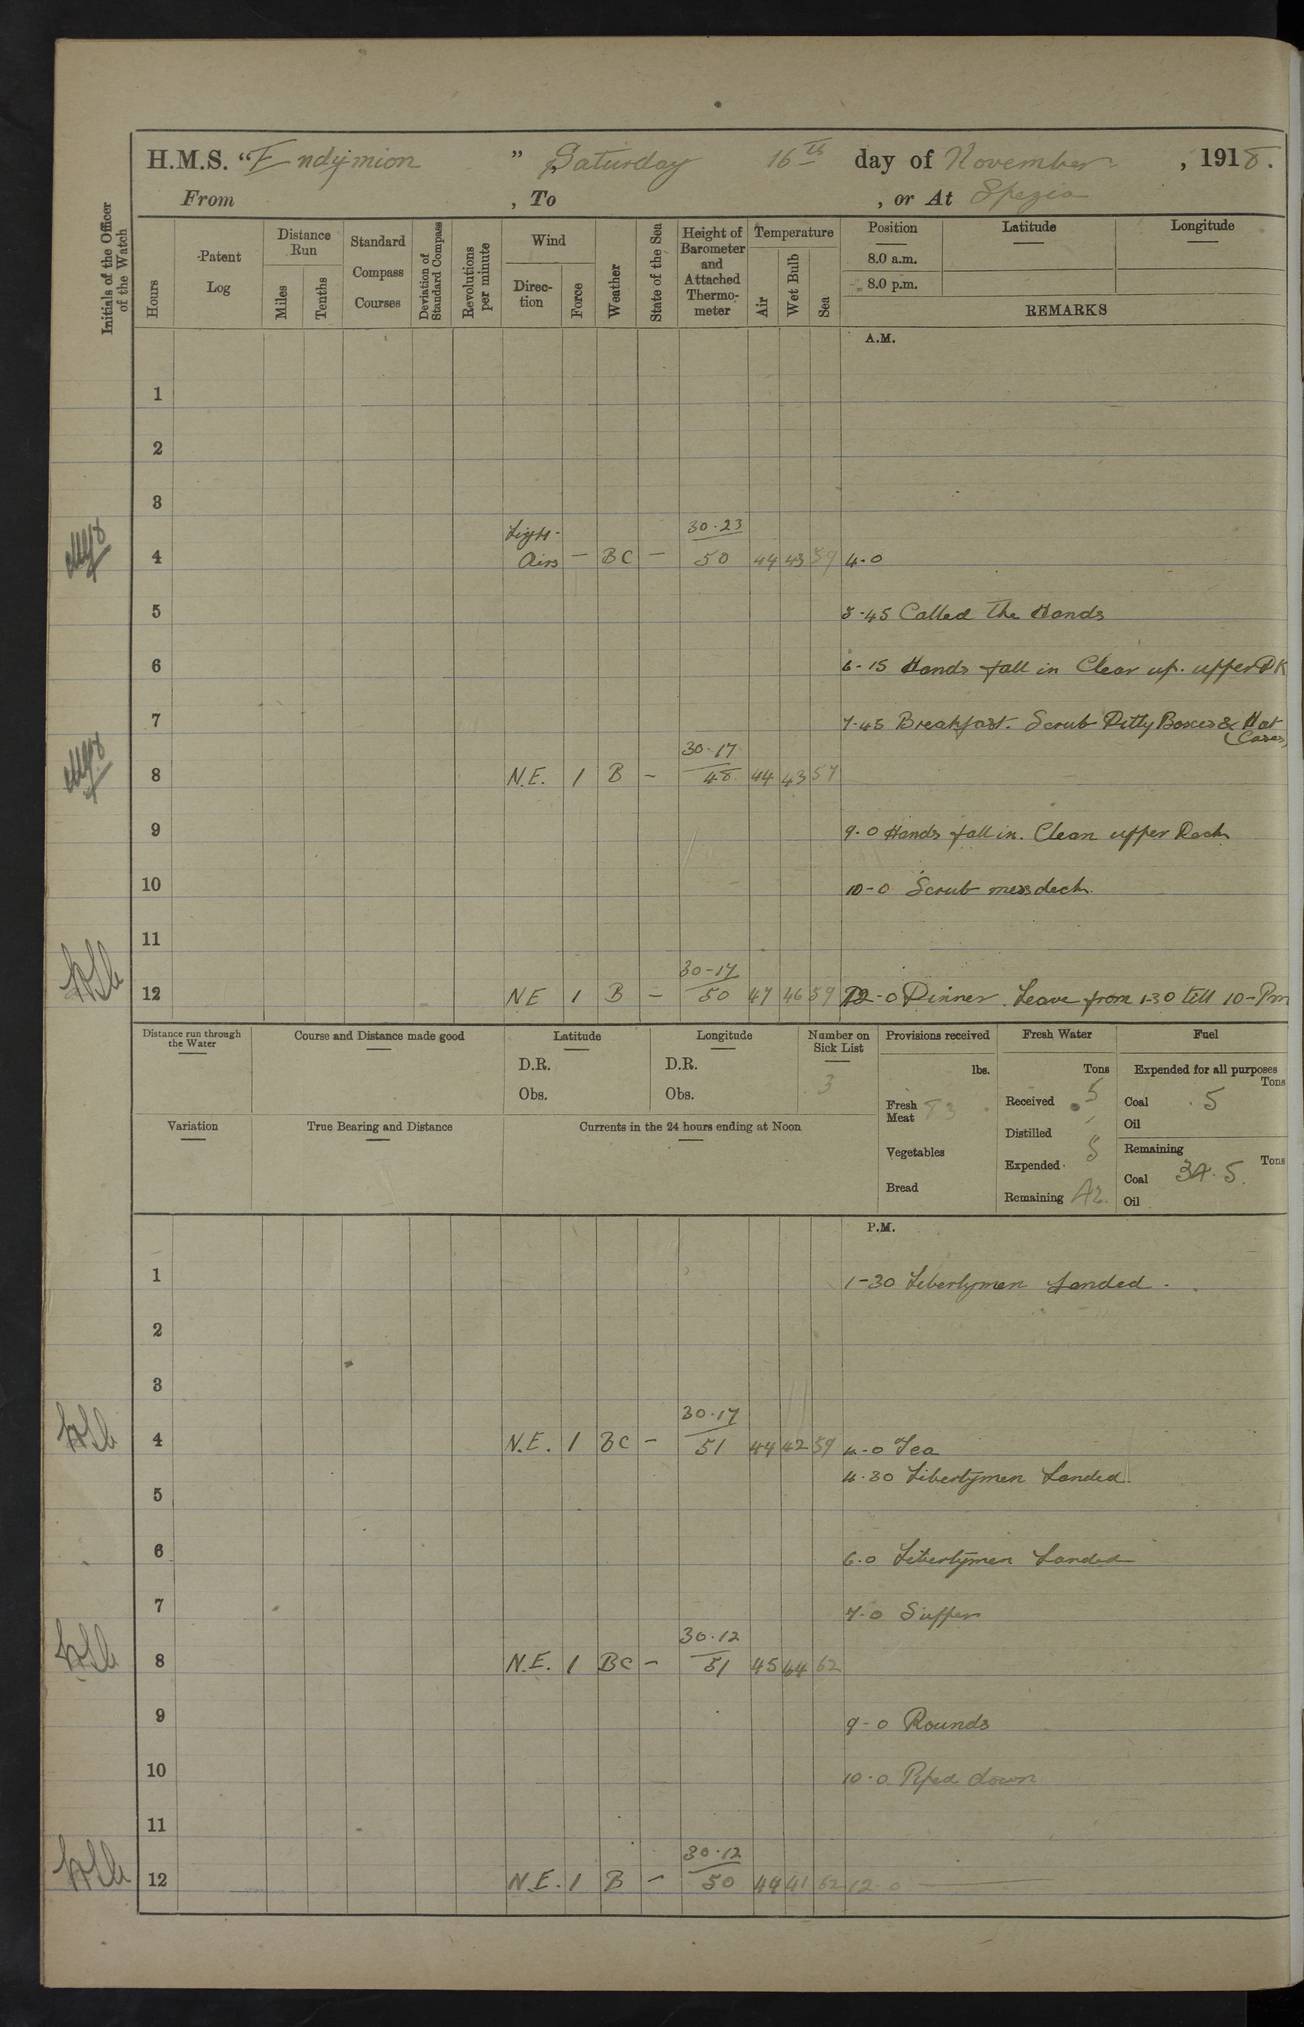 H.M.S. "Endymion" Saturday 16th day of November, 1918.
From , To , or At Spezia
Initials of the Officer of the Watch
Hours
Patent Log
Distance Run
Miles
Tenths
Standard Compass Courses
Deviation of Standard Compass
Revolutions per minute
Wind
Direction
Force
Weather
State of the Sea
Height of Barometer and Attached Thermometer
Temperature
Air
Wet Bulb
Sea
Position
8.0 a.m.
8.0 p.m.
Latitude
Longitude
REMARKS
A.M.
1
2
3
4 Light Airs — BC — 30.23 50 44 43 59 4.0
5 5-45 Called the Hands
6 6-15 Hands fall in Clear up. upper DK
7 7-45 Breakfast. Scrub Ditty Boxes & Hat Cases
8 N.E. 1 B — 30.17 48 44 43 57
9 9.0 Hands fall in. Clean upper Deck
10 10-0 Scrub messdeck.
11
12 NE 1 B — 30-17 50 47 46 59 12-0 Dinner. Leave from 1-30 till 10-Pm
Distance run through the Water
Course and Distance made good
Latitude
D.R.
Obs.
Longitude
D.R.
Obs.
Number on Sick List
3
Provisions received
lbs.
Fresh Meat 83
Vegetables
Bread
Fresh Water
Tons
Received 5
Distilled
Expended 5
Remaining 42
Fuel
Expended for all purposes
Tons
Coal 5
Oil
Remaining
Tons
Coal 34.5
Oil
Variation
True Bearing and Distance
Currents in the 24 hours ending at Noon
P.M.
1 1-30 Libertymen Landed.
2
3
4 N.E. 1 BC — 30.17 51 44 42 59 4-0 Tea
4.30 Libertymen Landed.
5
6 6.0 Libertymen Landed
7 7-0 Supper
8 N.E. 1 BC — 30.12 51 45 44 62
9 9-0 Rounds
10 10.0 Piped down
11
12 N.E. 1 B — 30.12 50 44 41 62 12.0